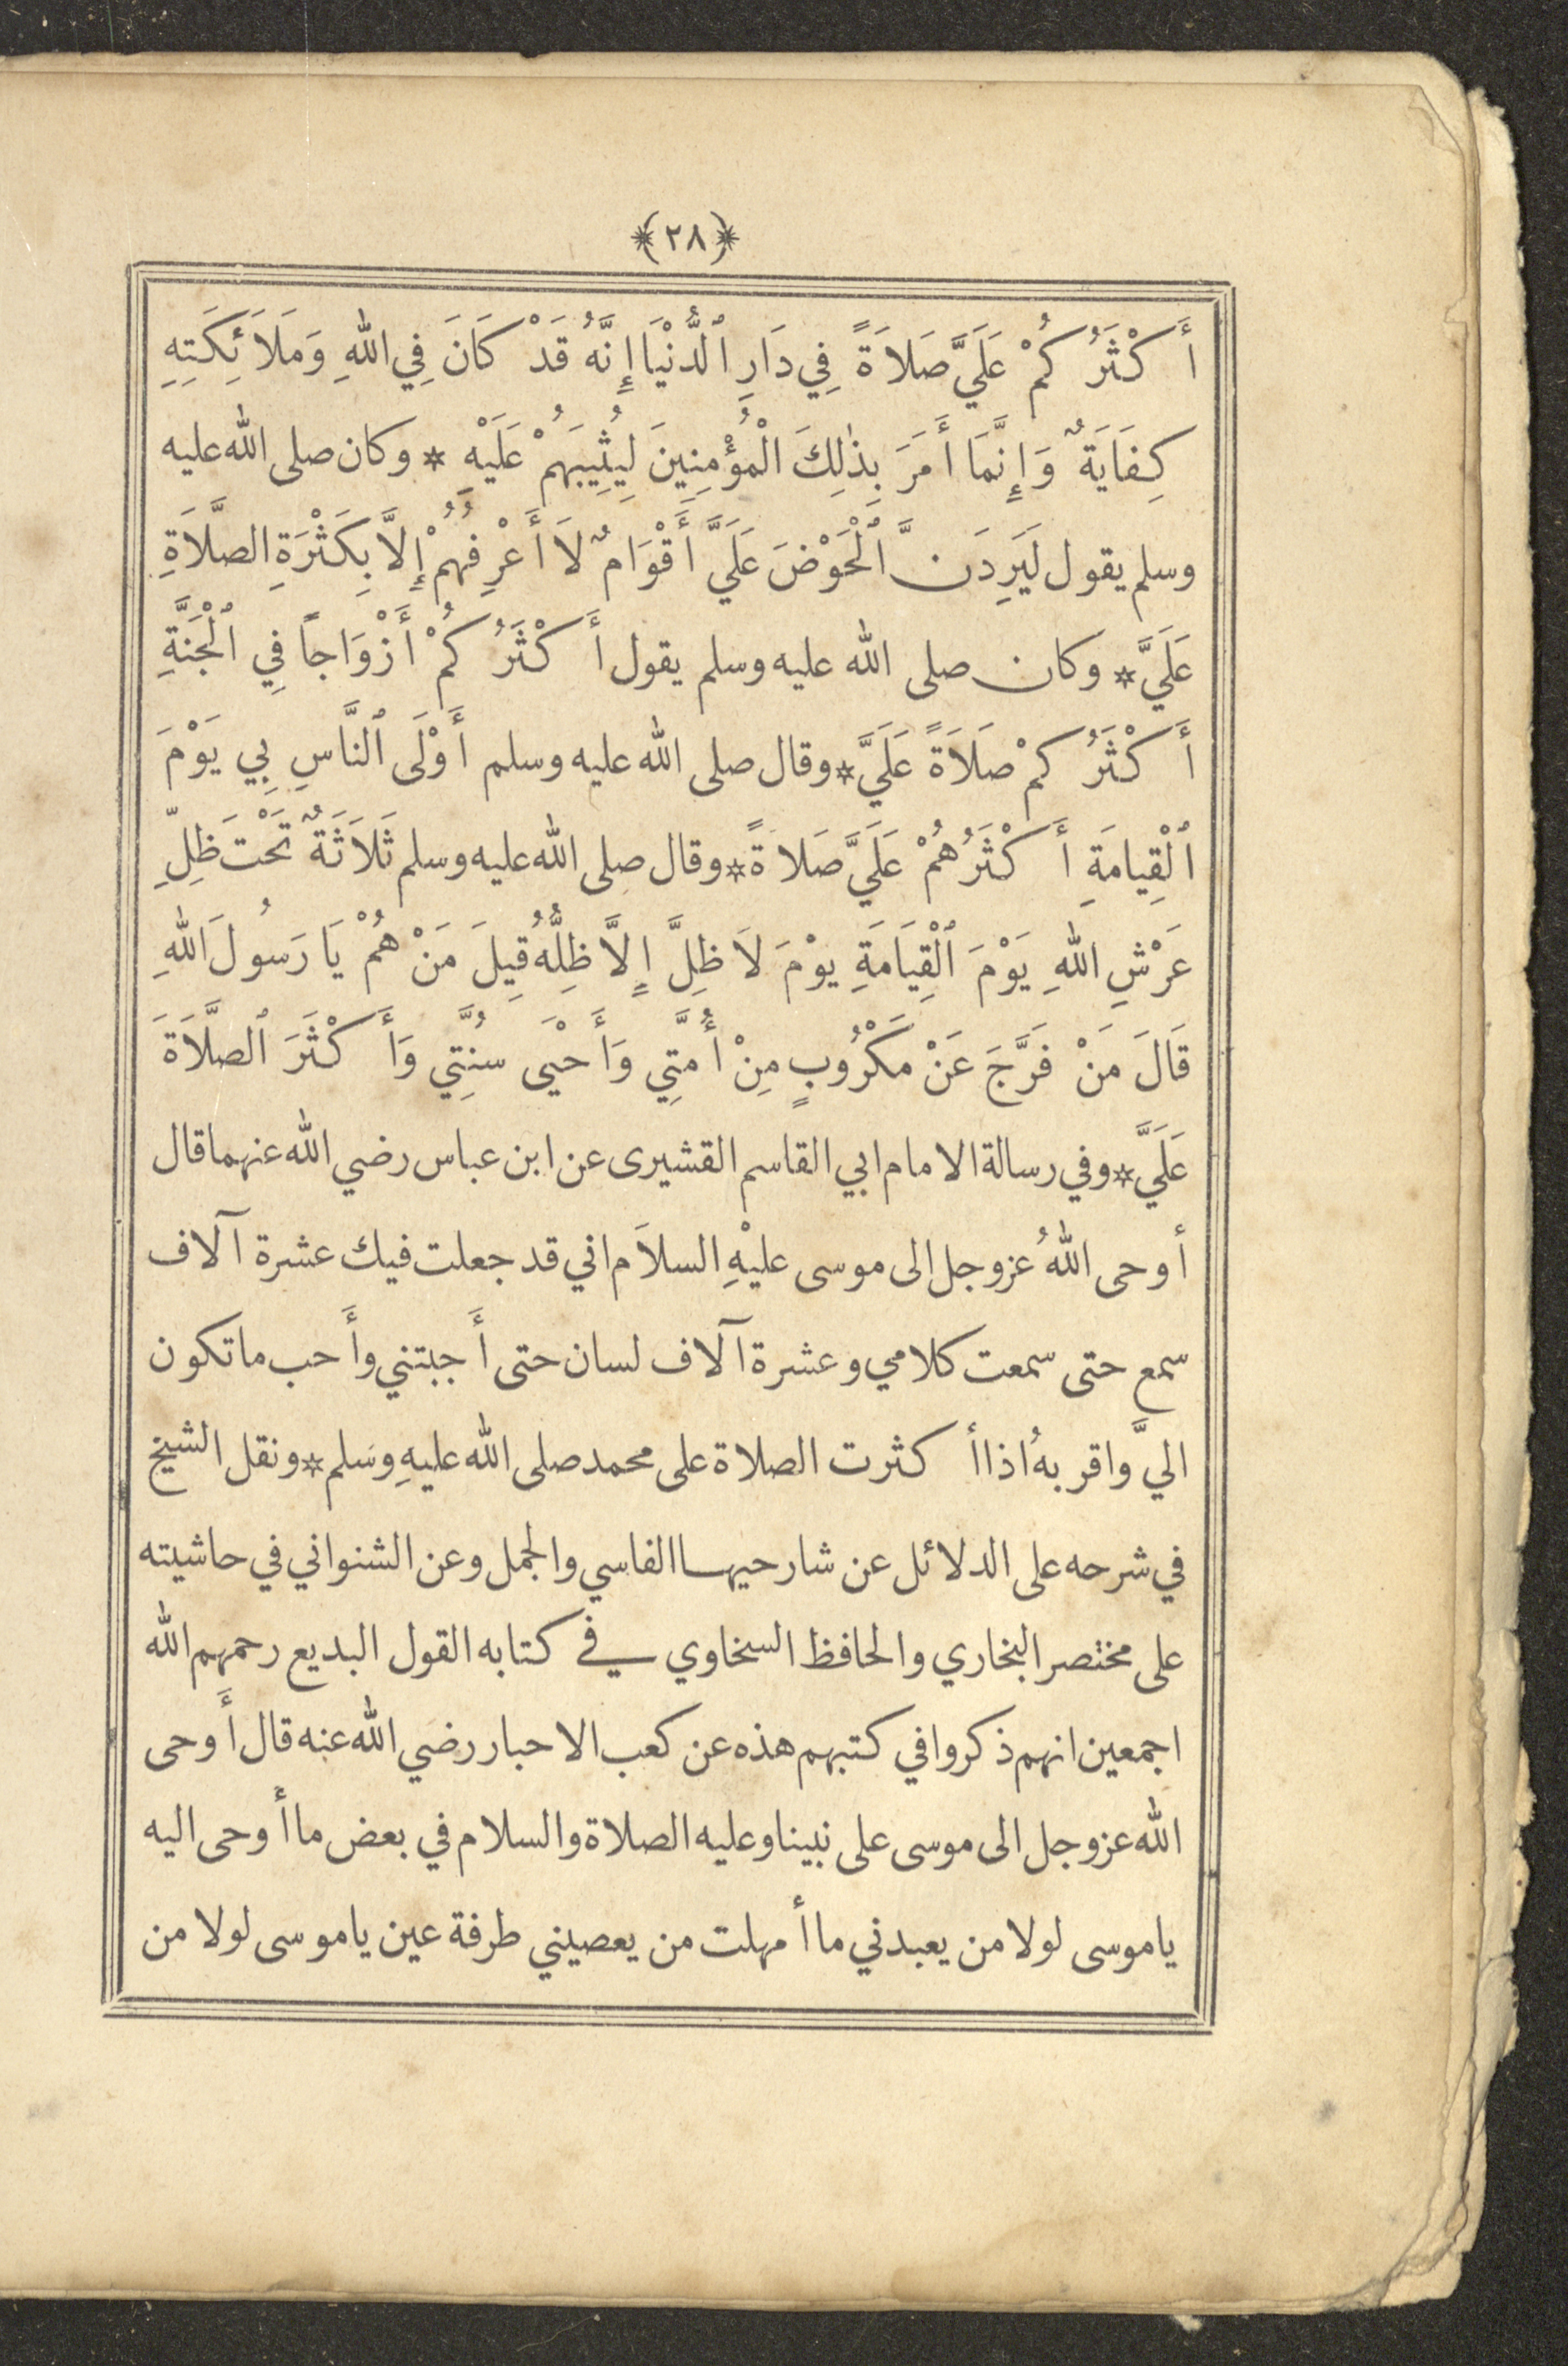 ﴿٢٨﴾
أَكْثَرُكُمْ عَلَيَّ صَلاَةً فِي دَارِ ٱلدُّنْيَا إِنَّهُ قَدْ كَانَ فِي اللهِ وَمَلاَئِكَتِهِ
كِفَايَةٌ وَإِنَّمَا أَمَرَ بِذٰلِكَ الْمُؤْمِنِينَ لِيُثِيبَهُمْ عَلَيْهِ * وكان صلى الله عليه
وسلم يقول لَيَرِدَنَّ ٱلْحَوْضَ عَلَيَّ أَقْوَامٌ لَا أَعْرِفُهُمْ إِلاَّ بِكَثْرَةِ الصَّلاَةِ
عَلَيَّ * وكان صلى الله عليه وسلم يقول أَكْثَرُكُمْ أَزْوَاجاً فِي ٱلْجَنَّةِ
أَكْثَرُكمْ صَلاَةً عَلَيَّ * وقال صلى الله عليه وسلم أَوْلَى ٱلنَّاسِ بِي يَوْمَ
ٱلْقِيامَةِ أَكْثَرُهُمْ عَلَيَّ صَلاةً * وقال صلى الله عليه وسلم ثَلاَثَةٌ تَحْتَ ظِلِّ
عَرْشِ اللهِ يَوْمَ ٱلْقِيَامَةِ يوْمَ لاَ ظِلَّ إِلاَّ ظِلُّهُ قِيلَ مَنْ هُمْ يَا رَسُولَ اللهِ
قَالَ مَنْ فَرَّجَ عَنْ مَكْرُوبٍ مِنْ أُمَّتِي وَأَحْيَى سُنَّتِي وَأَكْثَرَ ٱلصَّلاَةَ
عَلَيَّ * وفي رسالة الامام ابي القاسم القشيرى عن ابن عباس رضي الله عنهما قال
أوحى اللهُ عزوجل الى موسى عليْهِ السلاَم اني قد جعلت فيك عشرة آلاف
سمع حتى سمعت كلامي وعشرة آلاف لسان حتى أَجبتني وأَحب ما تكون
اليَّ واقربهُ اذا أكثرت الصلاة على محمد صلى الله عليهِ وسَلم * ونقل الشيخ
في شرحه على الدلائل عن شارحيها الفاسي والجمل وعن الشنواني في حاشيته
على مختصر البخاري والحافظ السخاوي في كتابه القول البديع رحمهم الله
اجمعين انهم ذكروا في كتبهم هذه عن كعب الاحبار رضي الله عنه قال أَوحى
الله عزوجل الى موسى على نبينا وعليه الصلاة والسلام في بعض ما أوحى اليه
ياموسى لولا من يعبدني ما أمهلت من يعصيني طرفة عين ياموسى لولا من